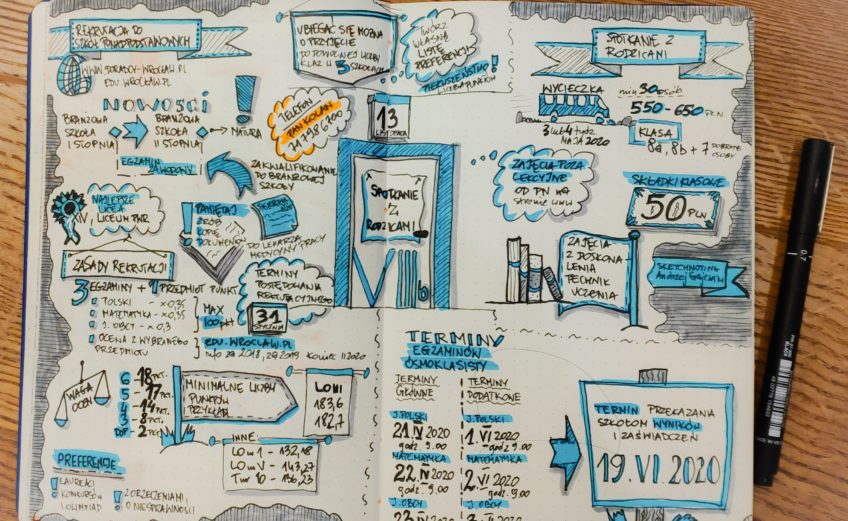 REKRUTACJA DO
SZKÓŁ PONADPODSTAWOWYCH
WWW.DORADY-WROCLAW.PL
EDU.WROCLAW.PL
NOWOŚCI
BRANŻOWA
SZKOŁA
I STOPNIA
BRANŻOWA
SZKOŁA
II STOPNIA
MATURA
EGZAMIN
ZAWODOWY
ZAKWALIFIKOWANIE
DO BRANŻOWEJ
SZKOŁY
NAJLEPSZE
LICEA
XIV, LICEUM PWR
PAMIĘTAJ
KOPIE
SKIEROWANIE
DO LEKARZA
MEDYCYNY PRACY
UBIEGAĆ SIĘ MOŻNA
O PRZYJĘCIE
DO DOWOLNEJ LICZBY
KLAS W 3 SZKOŁACH
TWÓRZ
WŁASNĄ
LISTĘ
PREFERENCJI
PIERWSZEŃSTWO
LICZBA PUNKTÓW
TELEFON
PAN KOLAN
717986700
13
LISTOPADA
SPOTKANIE
Z
RODZICAMI
VIIIb
ZASADY REKRUTACJI
3 EGZAMINY + 1 PRZEDMIOT PUNKT
POLSKI - x0,35
MATEMATYKA - x0,35
J. OBCY - x0,3
MAX
100 pkt
OCENA Z WYBRANEGO
PRZEDMIOTU
EDU.WROCLAW.PL
info za 2018, za 2019 koniec I 2020
TERMINY
POSTĘPOWANIA
REKRUTACYJNEGO
31
STYCZNIA
WAGA
OCEN
6 - 18 PKT.
5 - 17 PKT.
4 - 14 PKT.
3 - 8 PKT.
DOP - 2 PKT.
MINIMALNE LICZBY
PUNKTÓW
PRZYKŁAD
LO VII
183,6
182,7
INNE:
LO nr 1 - 132,18
LO nr V - 143,27
Tnr 10 - 136,23
PREFERENCJE
LAUREACI
KONKURSÓW
I OLIMPIAD
Z ORZECZENIAMI
O NIESPRAWNOŚCI
SPOTKANIE Z
RODZICAMI
WYCIECZKA
min 30 osób
550 - 650 PLN
3 lub 4 tydz.
MAJA 2020
KLASA
8a, 8b + 7
OSOBY
ZAJĘCIA POZA
LEKCYJNE
OD PN na
stronie www
SKŁADKI KLASOWE
50 PLN
ZAJĘCIA
Z DOSKONA
LENIA
TECHNIK
UCZENIA
SKETCHNOTING
TERMINY
EGZAMINÓW
ÓSMOKLASISTY
TERMINY
GŁÓWNE
TERMINY
DODATKOWE
J. POLSKI
21.IV 2020
godz. 9.00
J. POLSKI
1.VI 2020
godz. 9.00
MATEMATYKA
22.IV 2020
godz. 9.00
MATEMATYKA
2.VI 2020
godz. 9.00
J. OBCY
23.IV 2020
J. OBCY
TERMIN PRZEKAZANIA
SZKOŁOM WYNIKÓW
I ZAŚWIADCZEŃ
19.VI.2020
0.7
BLACK